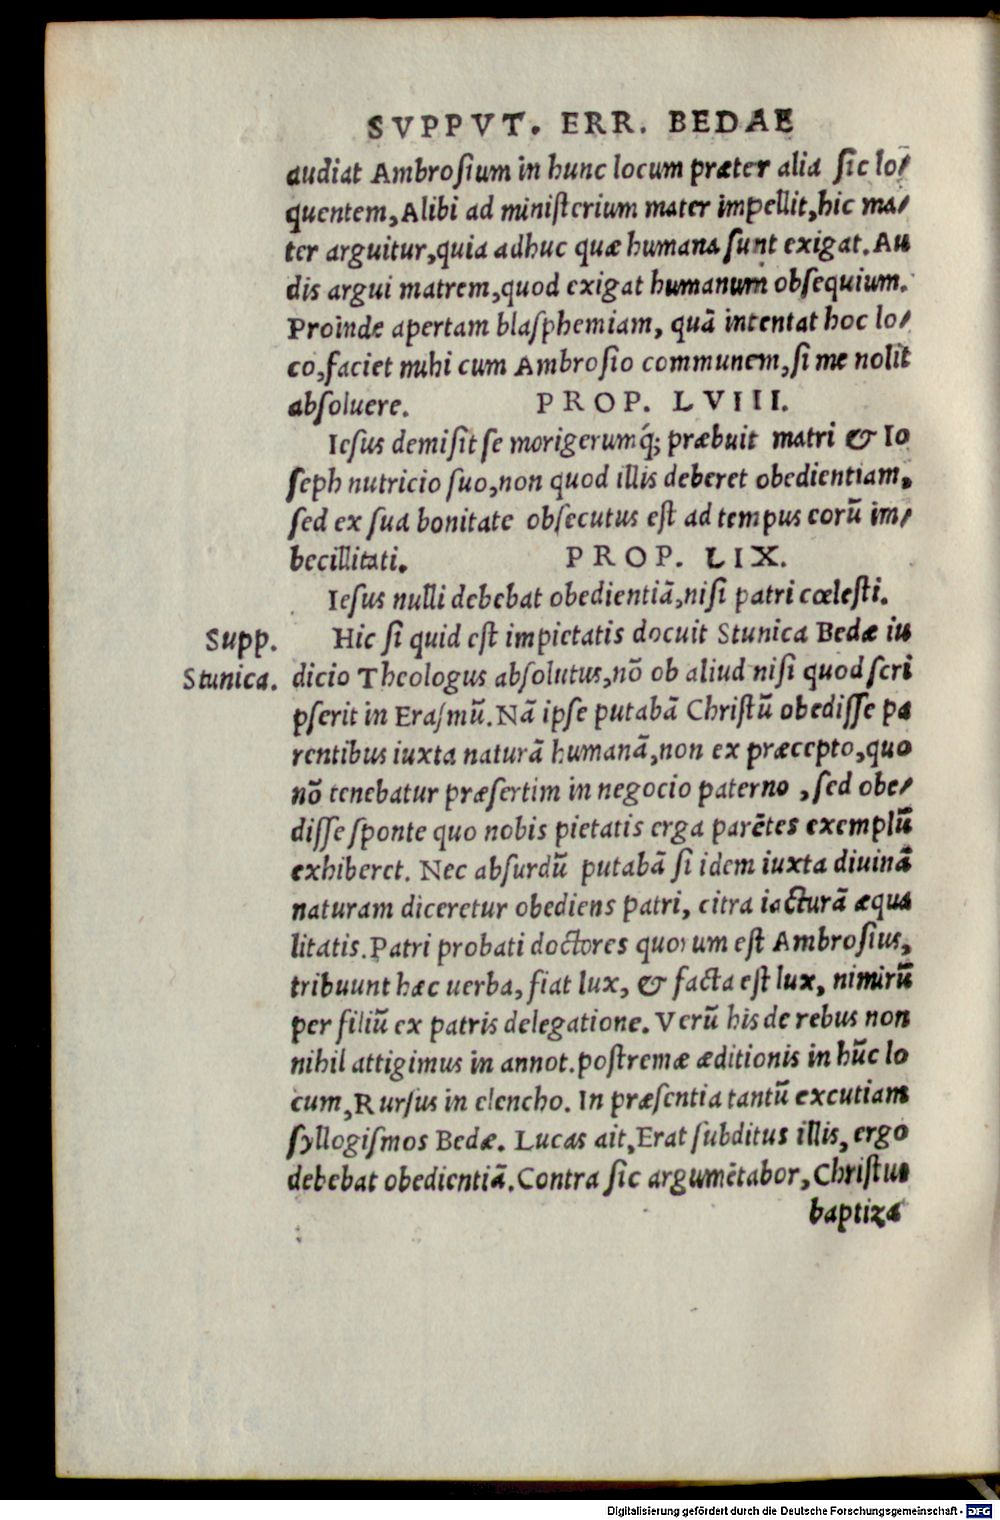 SVPPVT. ERR. BEDAE
audiat Ambroſium in hunc locum præter alia ſic lo/
quentem, Alibi ad miniſterium mater impellit, hic ma/
ter arguitur, quia adhuc quæ humana ſunt exigat. Au
dis argui matrem, quod exigat humanum obſequium.
Proinde apertam blaſphemiam, quã intentat hoc lo/
co, faciet mihi cum Ambroſio communem, ſi me nolit
abſoluere. PROP. LVIII.
Ieſus demiſit ſe morigerumq́; præbuit matri & Io
ſeph nutricio ſuo, non quod illis deberet obedientiam,
ſed ex ſua bonitate obſecutus eſt ad tempus eorũ im/
becillitati. PROP. LIX.
Ieſus nulli debebat obedientiã, niſi patri cœleſti.
Supp. Hic ſi quid eſt impietatis docuit Stunica Bedæ iu
Stunica. dicio Theologus abſolutus, nõ ob aliud niſi quod ſcri
pſerit in Eraſmũ. Nã ipſe putabã Chriſtũ obediſſe pa
rentibus iuxta naturã humanã, non ex præcepto, quo
nõ tenebatur præſertim in negocio paterno, ſed obe/
diſſe ſponte quo nobis pietatis erga parẽtes exemplũ
exhiberet. Nec abſurdũ putabã ſi idem iuxta diuinã
naturam diceretur obediens patri, citra iacturã æqua
litatis. Patri probati doctores quorum eſt Ambroſius,
tribuunt hæc uerba, fiat lux, & facta eſt lux, nimirũ
per filiũ ex patris delegatione. Verũ his de rebus non
nihil attigimus in annot. poſtremæ æditionis in hũc lo
cum, Rurſus in elencho. In præſentia tantũ excutiam
ſyllogiſmos Bedæ. Lucas ait, Erat ſubditus illis, ergo
debebat obedientiã. Contra ſic argumẽtabor, Chriſtus
baptiza
Digitalisierung gefördert durch die Deutsche Forschungsgemeinschaft - DFG